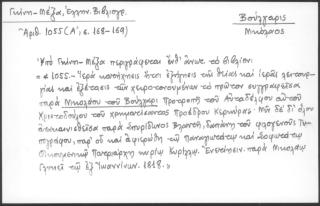 Γκίνη-Μέξα, Ἑλλην. Βιβλιογρ.
Ἀριθ. 1055 (Α', σ. 168-169)
Βούλγαρις
Νικόλαος
Ὑπὸ Γκίνη-Μέξα περιγράφεται τὸ βιβλίον:
« 1055.- Ἱερὰ κατήχησις ἤτοι ἐξήγησις τῆς θείας καὶ ἱερᾶς λειτουρ-
γίας καὶ ἐξέτασις τῶν χειροτονουμένων τὸ πρῶτον συγγραφεῖσα
παρὰ Νικολάου τοῦ Βουλγάρι Προτροπῇ τοῦ Αὐταδέλφου αὐτοῦ
Χριστοδούλου τοῦ χρηματίσαντος Προέδρου Κερκύρας· Νῦν δὲ
παρὰ Σπυρίδωνος Βλαντῆ, δαπάνῃ τοῦ φιλογενοῦς Τυ-
πογράφου, παρ' οὗ καὶ ἀφιερώθη τῷ Παναγιωτάτῳ καὶ Σοφωτάτῳ
Οἰκουμενικῷ Πατριάρχῃ κυρίῳ Κυρίλλῳ. Ἐνετίησιν. παρὰ Νικολάῳ
Γλυκεῖ τῷ ἐξ Ἰωαννίνων. 1818.»